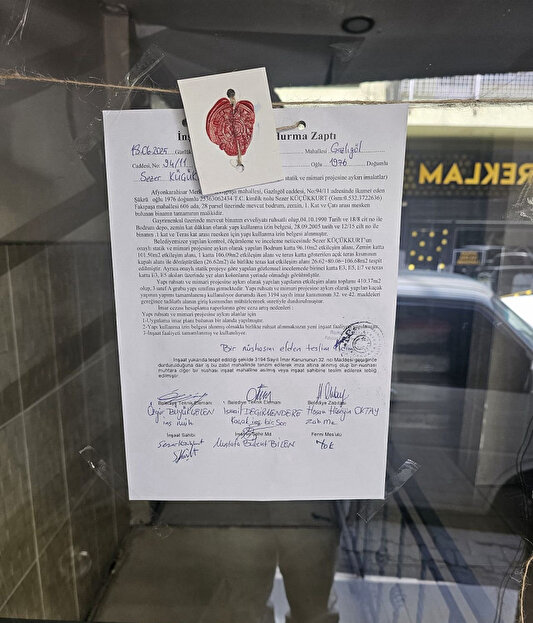 REKLAM
İn
urma Zaptı
13.06.2025
Mahallesi Gazlıgöl
Caddesi, No: 94/11
Oğlu 1976 Doğumlu
Sezer KÜÇÜK
statik ve mimari projesine aykırı imalatlar)
Afyonkarahisar Merkez
mahallesi, Gazlıgöl caddesi, No:94/11 adresinde ikamet eden
Şükrü oğlu 1976 doğumlu
T.C. kimlik nolu Sezer KÜÇÜKKURT
mahallesi 606 ada, 28 parsel üzerinde mevcut bodrum, zemin, 1. Kat ve Çatı arası mesken
bulunan binanın tamamının malikidir.
Gayrimenkul üzerinde mevcut binanın evveliyatı ruhsatlı olup,04.10.1990 Tarih ve 18/8 cilt no ile
Bodrum depo, zemin kat dükkan olarak yapı kullanma izin belgesi alınmış, 28.09.2005 tarih ve 12/15 cilt no ile
binanın .1 kat ve Teras kat arası mesken için yapı kullanma izin belgesi alınmıştır.
Belediyemizce yapılan kontrol, ölçümleme ve inceleme neticesinde Sezer KÜÇÜKKURT'un
onaylı statik ve mimari projesine aykırı olarak yapılan Bodrum katta 96.10m2 etkileşim alanı, Zemin katta
101.50m2 etkileşim alanı, 1 katta 106.09m2 etkileşim alanı ve teras katta gösterilen açık teras kısmının
kapalı alanı ile dönüştürülen (26.62m2) ile birlikte teras kat etkileşim alanı, 26.62+80.06=106.68m2 tespit
edilmiştir. Ayrıca onaylı statik projeye göre yapılan gözlemsel incelemede birinci katta E3, F5, I/7 ve terras
katta E3, F5 aksları üzerinde yer alan kolonların yerinde olmadığı görülmüştür.
Yapı ruhsatı ve mimari projesine aykırı olarak yapılan yapıların etkileşim alanı toplamı 410.37m2
olup, 3 sınıf A grubu yapı sınıfına girmektedir. Yapı ruhsatı ve mimari projesine aykırı olarak yapılan kaçak
yapının yapımı tamamlanmış kullanılıyor durumda iken 3194 sayılı imar Kanununun 32. ve 42. maddeleri
gereğince tadilattı alanan giriş kısmından mühürlenerek suretiyle durdurulmuştur.
İmar cezası hesaplama raporlarına göre ceza artış nedenleri :
Yapı ruhsatı ve mimari projesine aykırı alanlar için
1-Uygulama imar planı bulunan bir alanda yapılmıştır.
2-Yapı kullanma izin belgesi alınmış olmakla birlikte ruhsat alınmaksızın yeni inşaat faaliyeti
3-İnşaat faaliyeti tamamlanmış ve kullanılıyor.
Bir nüshasını elden teslim
İnşaat yukarıda tespit edildiği şekilde 3194 Sayılı İmar Kanununun 32. no Maddesi gereğince
durdurulduğuna dair iş bu zabıt mahallinde tanzim edilerek imza altına alınmış olup bir nüshası
muhtara diğer bir nüshası inşaat mahalline asılmış veya inşaat sahibine teslim edilerek tebliğ
edilmiştir.
Belediye Teknik Elemanı
Belediye Teknik Elemanı
Belediye Zabıtası
İsmail DEĞİRMENDERE
Hasan Hüseyin OKTAY
inş. müh
Zab. Me.
İnşaat Sahibi
Fenni Mes'ulü
Mustafa Bülent BİLEN
Yok